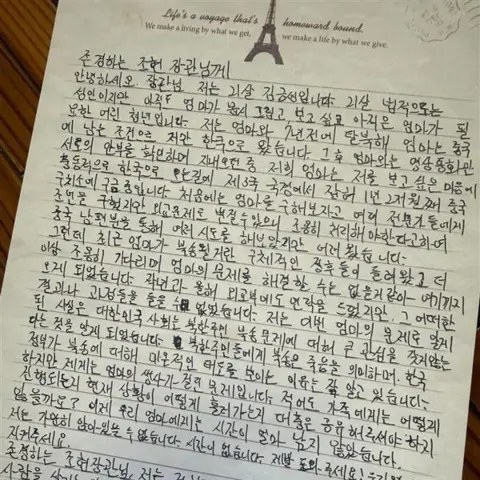 Life's a voyage that's homeward bound.
We make a living by what we get, we make a life by what we give.
존경하는 조현 장관님께
안녕하세요. 장관님 저는 21살 김금성입니다. 21살 법적으로는
성인이지만 아직도 엄마가 몹시 그립고 보고 싶고 아직은 엄마가 필
요한 어린 청년입니다. 저는 엄마와 7년전에 탈북해 엄마는 중국
에 남는 조건으로 저만 한국으로 왔습니다. 그 후 엄마와는 영상통화만
서로의 안부를 확인하며 지내오던 중 저희 엄마는 저를 보고 싶은 마음에
충동적으로 한국으로 오는길에 제3국 국경에서 잡혀 1년 2개월째 중국
구치소에 구금 중입니다. 처음에는 엄마를 구해보자고 여러 전문가들에게
조언을 구했지만 외교문제로 번질수있으니 조용히 처리해야한다고하여
중국 남편분을 통해 여러시도를 해보았지만 어려웠습니다.
그런데 최근 엄마가 북송될거란 구체적인 정황들이 들려왔고 더
이상 조용히 기다리며 엄마의 문제를 해결할 수는 없을거같아 여기까지
오게 되었습니다. 작년과 올해 외교부에도 연락을 드렸지만 그 어떠한
결과나 과정들을 들을 수 없었습니다. 저는 이번 엄마의 문제로 알게
된 사실은 대한민국 사회는 북한주민 북송문제에 대해 큰 관심을 갖지않는
다는 것을 알게 되었습니다. 북한주민들에게 북송은 죽음을 의미하며, 한국
정부가 북송에 대해 미온적인 태도를 보이는 이유는 잘 알고 있습니다.
하지만 제게는 엄마의 생사가 걸린 문제입니다. 적어도 가족에게는 어떻게
진행되는지 현재 상황이 어떻게 흘러가는지 대충은 공유해주셔야 하지
않을까요? 이제 우리 엄마에게는 시간이 얼마 남지 않았습니다.
저는 가만히 앉아있을 수 없습니다. 시간이 없습니다. 제발 도와주세요!
지켜주세요.
존경하는 조현장관님, 저는
사람을